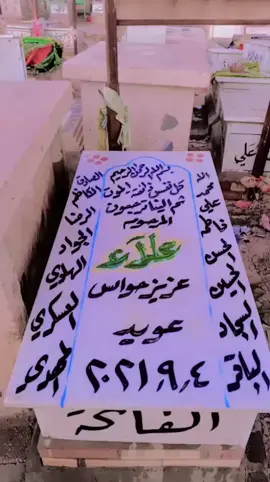 بسم الله الرحمن الرحيم
كل نفس ذائقة الموت
ثم الينا ترجعون
المرحومه
علاء
عزيز حواس
عويد
٢٠٢١.٩.٤
الفاتحة
الله
محمد
علي
فاطمه
الحسن
الحسين
السجاد
الباقر
الصادق
الكاظم
الرضا
الجواد
الهادي
العسكري
المهدي
علي